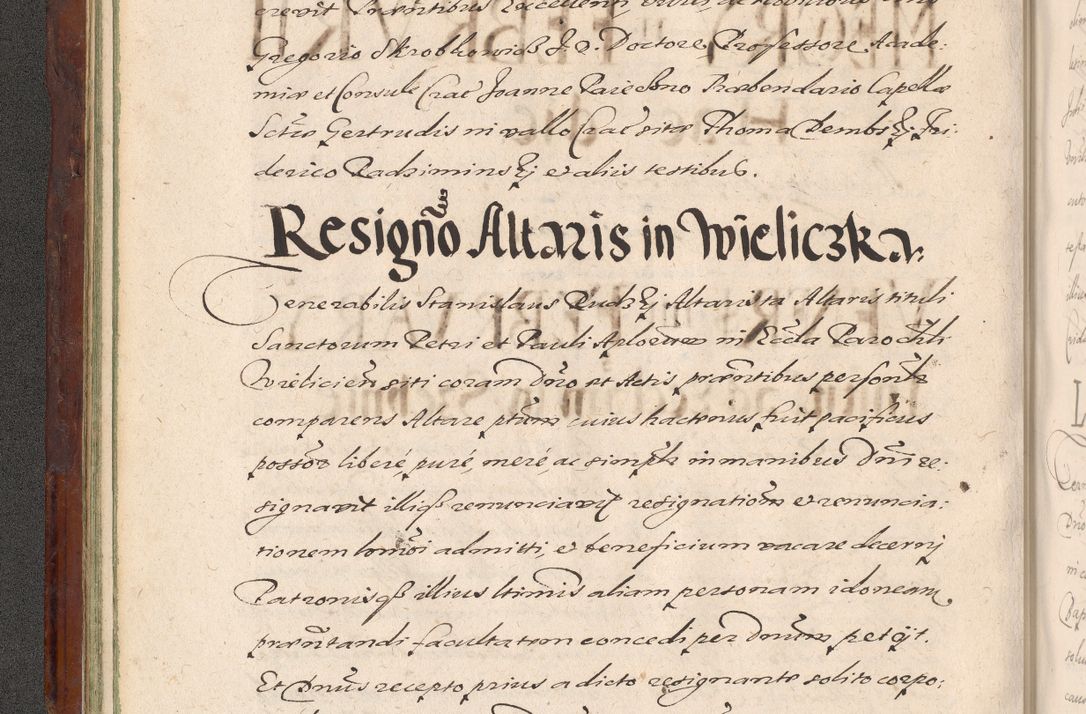 crevit Præsentibus Excellenti
Gregorio Skrobkowicz J. V. Doctore, Professore Acade:
miæ et Consule Crac̄ Joanne Præbendario Capellæ
Sctæ Gertrudis in vallo Crac̄ sitæ Thoma Dembskj, Fri:
derico Radziminskj et aliis testibus.
Resigno Altaris in Wieliczka.
Venerabilis Stanislaus Rudzkj Altarista Altaris tituli
Sanctorum Petri et Pauli Aplorum in Eccla Parochli
Wielicien̄ siti coram Dno et Actis præntibus personlr
comparens Altare ptum cuius hactenus fuit pacificus
possor liberé, puré, meré ac simplr in manibus Dni re:
signavit illiq3 renunciavit, resignationem et renuncia:
tionem homōi admitti, et beneficium vacare decernj
Patronisq3 illius ltimis aliam personam idoneam
præntandi facultatem concedi per Dnum petijt.
Et Dnus recepto prius a dicto resignante solito corpo: